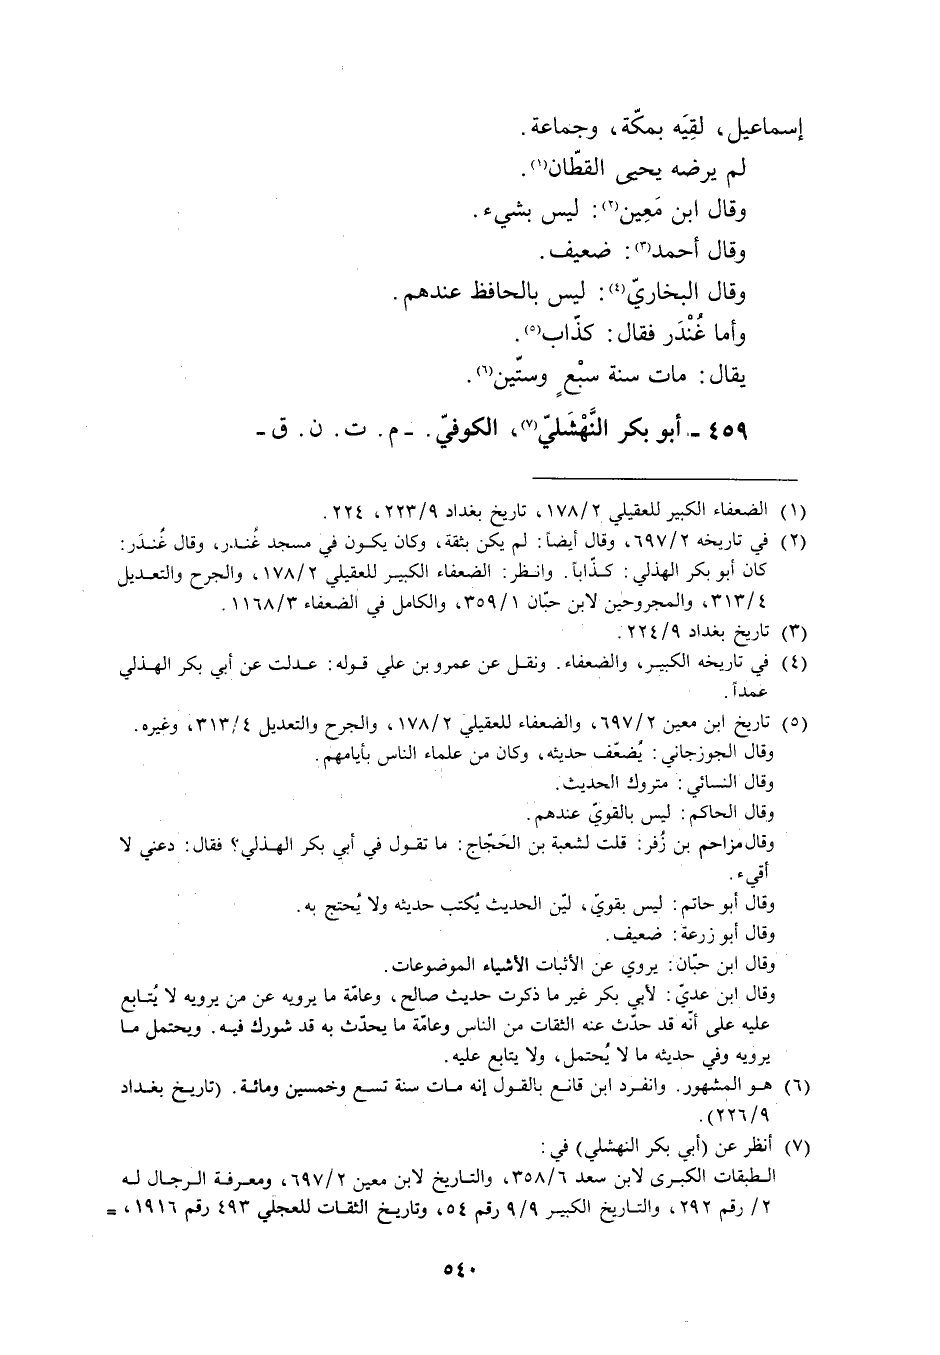 إسماعيل، لقِيَه بمكّة، وجماعة.
لم يرضه يحيى القطّان(١).
وقال ابن مَعِين(٢): ليس بشيء.
وقال أحمد(٣): ضعيف.
وقال البخاريّ(٤): ليس بالحافظ عندهم.
وأما غُنْدَر فقال: كذّاب(٥).
يقال: مات سنة سبْعٍ وستّين(٦).
٤٥٩ ـ أبو بكر النَّهْشَليّ(٧)، الكوفيّ. ـ م. ت. ن. ق ـ
(١) الضعفاء الكبير للعقيلي ١٧٨/٢، تاريخ بغداد ٢٢٣/٩، ٢٢٤.
(٢) في تاريخه ٦٩٧/٢، وقال أيضاً: لم يكن بثقة، وكان يكون في مسجد غُندر، وقال غُندَر:
كان أبو بكر الهذلي: كذّاباً. وانظر: الضعفاء الكبير للعقيلي ١٧٨/٢، والجرح والتعديل
٣١٣/٤، والمجروحين لابن حبّان ٣٥٩/١، والكامل في الضعفاء ١١٦٨/٣.
(٣) تاريخ بغداد ٢٢٤/٩.
(٤) في تاريخه الكبير، والضعفاء. ونقل عن عمرو بن علي قوله: عدلت عن أبي بكر الهذلي
عمداً.
(٥) تاريخ ابن معين ٦٩٧/٢، والضعفاء للعقيلي ١٧٨/٢، والجرح والتعديل ٣١٣/٤، وغيره.
وقال الجوزجاني: يُضعّف حديثه، وكان من علماء الناس بأيامهم.
وقال النسائي: متروك الحديث.
وقال الحاكم: ليس بالقويّ عندهم.
وقال مزاحم بن زُفر: قلت لشعبة بن الحَجّاج: ما تقول في أبي بكر الهذلي؟ فقال: دعني لا
أقيء.
وقال أبو حاتم: ليس بقويّ، ليّن الحديث يُكتب حديثه ولا يُحتج به.
وقال أبو زرعة: ضعيف.
وقال ابن حبّان: يروي عن الأثبات الأشياء الموضوعات.
وقال ابن عديّ: لأبي بكر غير ما ذكرت حديث صالح، وعامّة ما يرويه عن من يرويه لا يُتابع
عليه على أنّه قد حدّث عنه الثقات من الناس وعامّة ما يحدّث به قد شورك فيه. ويحتمل ما
يرويه وفي حديثه ما لا يُحتمل، ولا يتابع عليه.
(٦) هو المشهور. وانفرد ابن قانع بالقول إنه مات سنة تسع وخمسين ومائة. (تاريخ بغداد
٢٢٦/٩).
(٧) أنظر عن (أبي بكر النهشلي) في:
الطبقات الكبرى لابن سعد ٣٥٨/٦، والتاريخ لابن معين ٦٩٧/٢، ومعرفة الرجال له
٢/ رقم ٢٩٢، والتاريخ الكبير ٩/٩ رقم ٥٤، وتاريخ الثقات للعجلي ٤٩٣ رقم ١٩١٦، =
٥٤٠